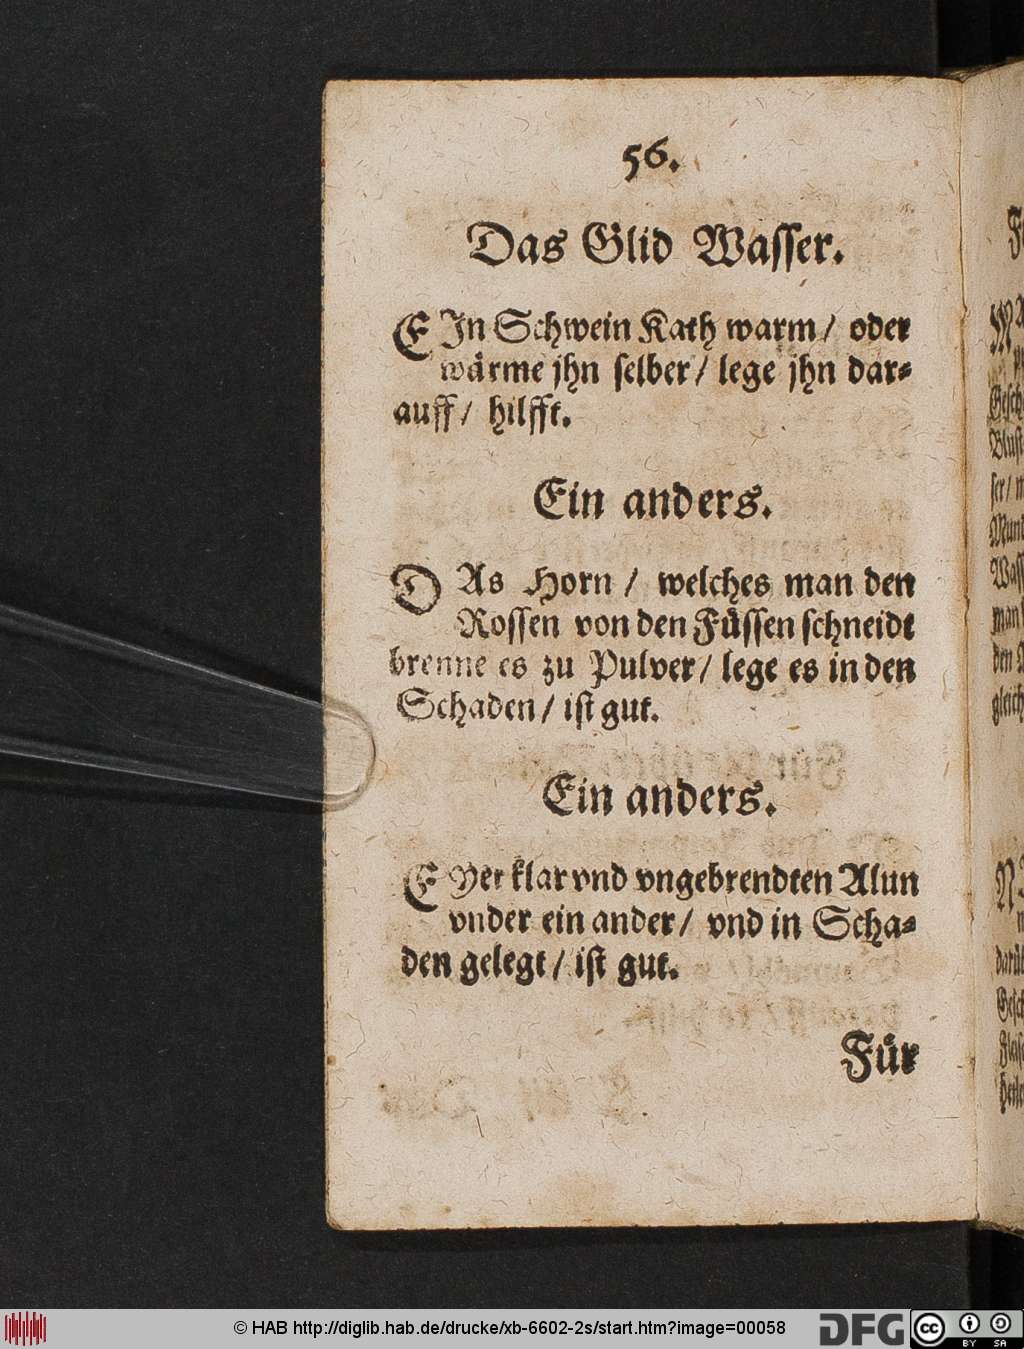 56.
Das Glid Wasser.
EJn Schwein Kath warm / oder
wärme jhn selber / lege jhn dar-
auff / hilfft.
Ein anders.
DAs Horn / welches man den
Rossen von den Füssen schneidt
brenne es zu Pulver / lege es in den
Schaden / ist gut.
Ein anders.
EYer klar vnd vngebrendten Alun
vnder ein ander / vnd in Scha-
den gelegt / ist gut.
Für
© HAB http://diglib.hab.de/drucke/xb-6602-2s/start.htm?image=00058
DFG
cc BY SA